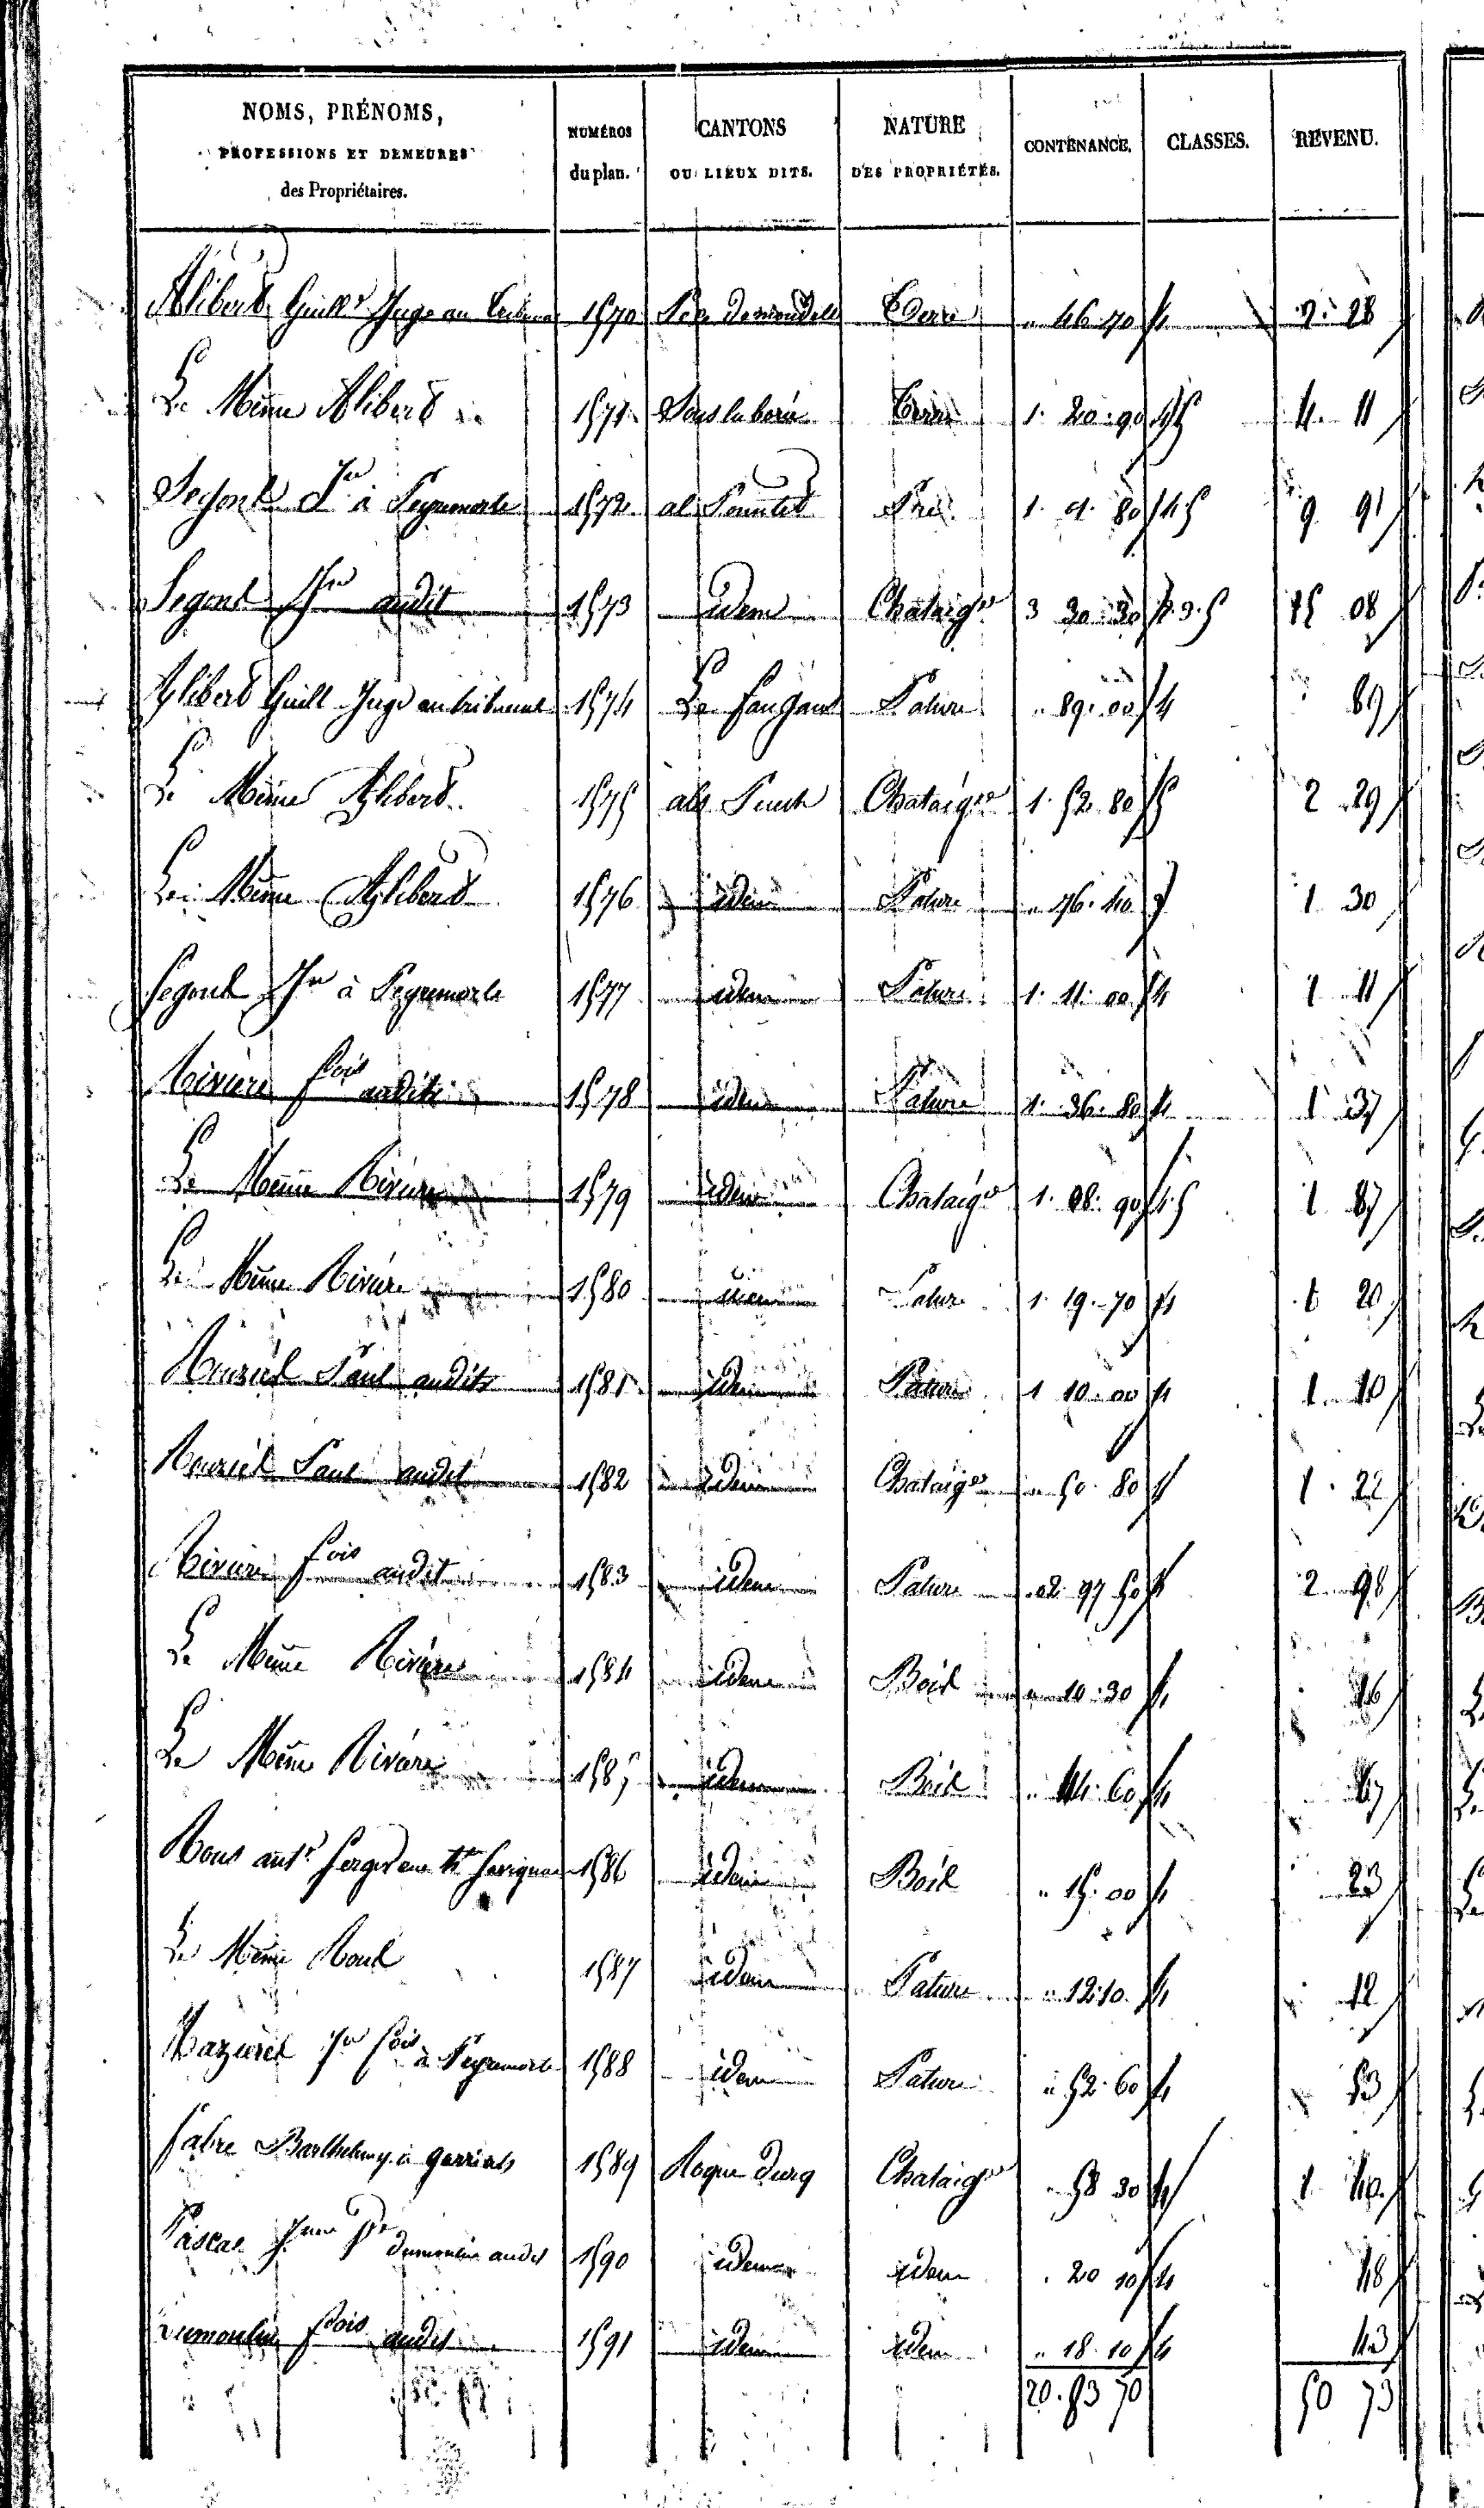 NOMS, PRÉNOMS, PROFESSIONS ET DEMEURES des Propriétaires. NUMÉROS du plan. CANTONS OU LIEUX DITS. NATURE DES PROPRIÉTÉS. CONTENANCE. CLASSES. REVENU.
Alibert Guille Juge au 1570 Terre " 46. 70 4 2. 28
Le Même Alibert 1571 Sous la borie Terre 1. 20. 90 4 5 4. 11
Segond Jn à Peyremorte 1572 al Pré 1. 80 4 5 9 91
Segond Jn audit 1573 idem Chataigre 3 30 30 2. 3. 5 15 08
Alibert Guill Juge au tribunal 1574 Le Pature " 89. 00 4 89
Le Même Alibert 1575 als Puech Chataigre 1. 52. 80 5 2 29
Le Même Alibert 1576 idem Pature " 76. 40 1 30
Segond Jn à Peyremorte 1577 idem Pature 1. 11. 00 4 1 11
Rivière fois audit 1578 idem Pature 1. 36. 80 4 1 37
Le Même Rivière 1579 idem Chataigre 1. 08. 90 4. 5 1 87
Le Même Rivière 1580 idem Pature 1. 19. 70 4 1 20
Mouziel Paul audit 1581 idem Pature 1 10. 00 4 1. 10
Mouziel Paul audit 1582 idem Chataigre " 50. 80 4 1. 22
Rivière fois audit 1583 idem Pature 2 97 50 4 2 98
Le Même Rivière 1584 idem Bois " 10. 30 4 16
Le Même Rivière 1585 idem Bois " 44. 60 4 67
Roux antne 1586 idem Bois " 15. 00 4 23
Le Même Roux 1587 idem Pature " 12. 10. 4 12
Mazuriel Jn fois à Peyremorte 1588 idem Pature " 52. 60 4 53
Fabre Barthelemy à garrials 1589 Roque Durg Chataigre " 58 30 4 1 40.
Pascal Dumoulin audit 1590 idem idem " 20 10 4 48
Dumoulin fois audit 1591 idem idem " 18. 10 4 43
20. 83 70 50 73